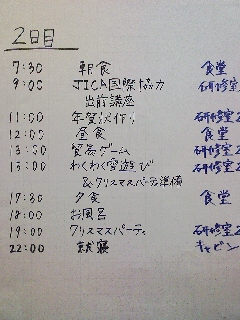 2日目
7:30 朝食 食堂
9:00 JICA国際協力 研修室
出前講座
11:00 年賀状作り 研修室2
12:00 昼食 食堂
13:00 貿易ゲーム 研修室2
15:00 わくわく雪遊び 研修室2
&クリスマスパーティ準備
17:30 夕食 食堂
18:00 お風呂
19:00 クリスマスパーティ 研修室2
22:00 就寝 キャビン